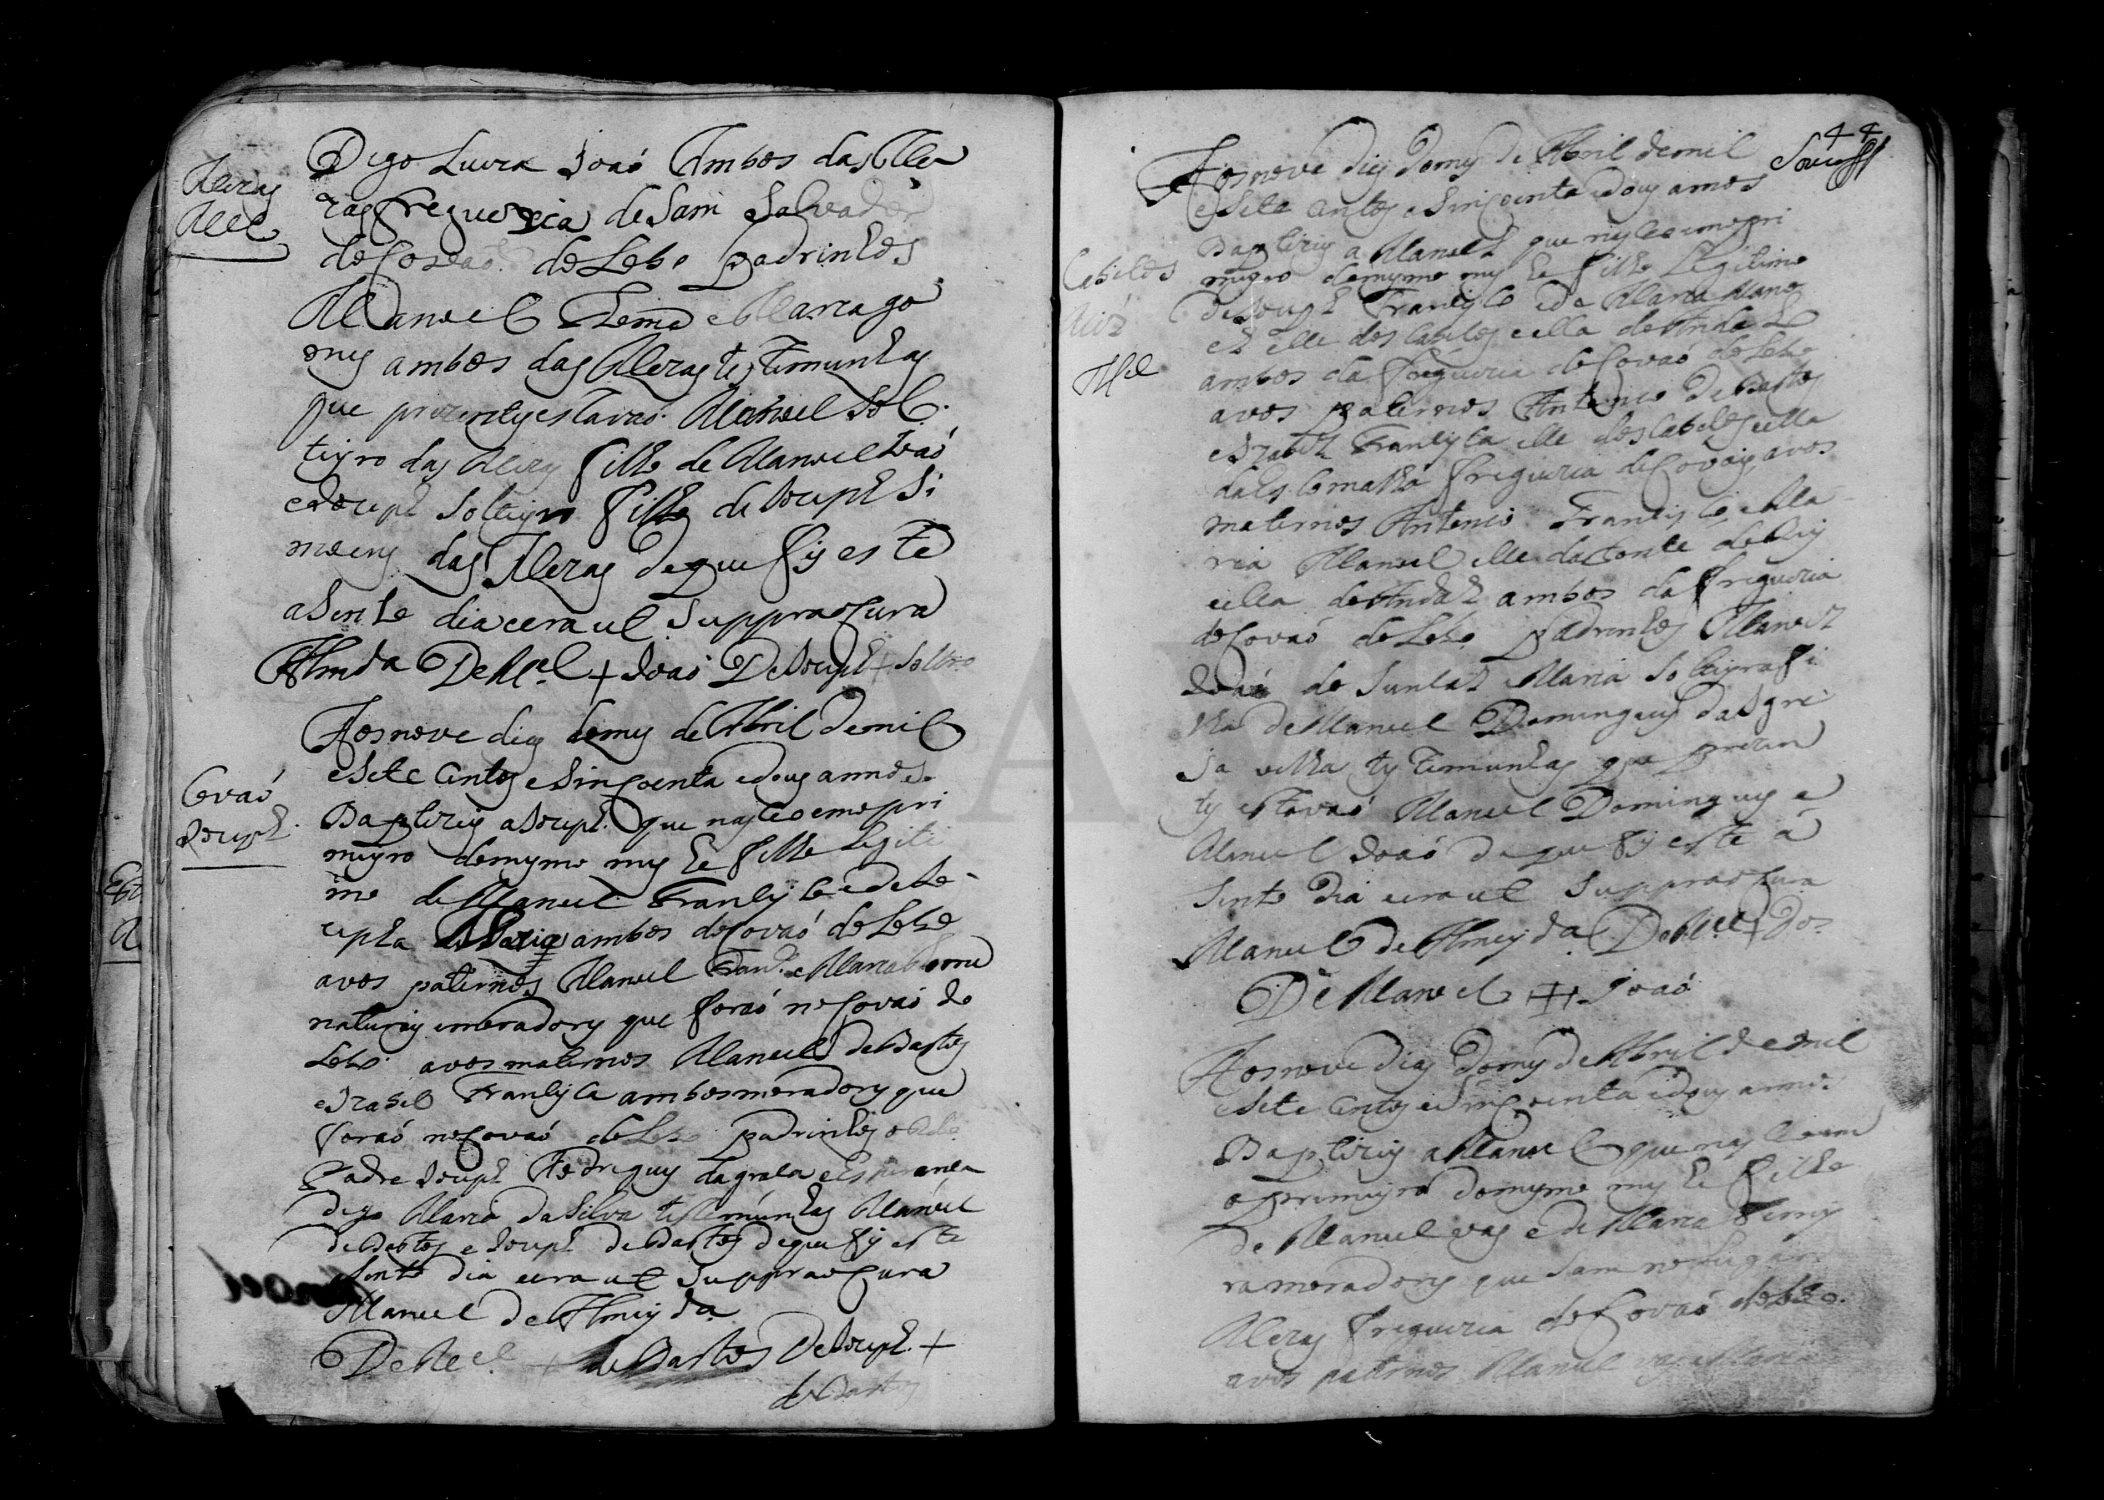 Digo Luiza Joaó Ambos das Me
zas freguezia de Sam Salvador
do Covaó do Lobo padrinhos
Manoel Thomé e Maria go
mes ambos das Mezas testimunhas
que prezentes estavaó Manoel Sol
teyro das Mezas filho de Manoel Joaó
e Joseph Solteyro filho de Joseph Si
moens das Mezas de que fis este
asento dia e era ut Suppra o Cura
Almda De Mel + Joaó De Joseph + Soltro
Mezas
Mel
Aos nove dias do mes de Abril de mil
e Sete Centos e Sincoenta e dous annos
Baptizey a Joseph que nasceo em o pri
meyro do mesmo mes he filho Legiti
mo de Manoel Francisco e de Jo
sepha Maria ambos do Covaó do Lobo
avos paternos Manoel Franco e Maria
naturais e moradores que foraó no Covaó do
Lobo avos maternos Manoel de Bastos
e Izabel Francisca ambos moradores que
foraó no Covaó do Lobo padrinhos o Rdo
Padre Joseph Rodrigues da
digo Maria da Silva testemunhas Manoel
de Bastos e Joseph de Bastos de que fis este
asento dia e era ut Suppra o Cura
Manoel de Almeyda
De Mel + de Bastos De Joseph +
de Bastos
Covaó
Joseph
44
Aos nove dias do mes de Abril de mil
e Sete Centos e Sincoenta e dous annos
Baptizey a Manoel que nasceo em o pri
meyro do mesmo mes he filho Legitimo
de Joseph Francisco e de Maria Mano
el elle dos Cabelos e ella de
ambos da freguezia do Covaó do Lobo
avos paternos Antonio de Bastos
e Izabel Francisca elle dos Cabelos e ella
da freguezia de Covaó avos
maternos Antonio Francisco e Ma
ria Manoel elle da Fonte de
e ella de ambos da freguezia
do Covaó do Lobo padrinhos Manoel
Joaó de e Maria Solteyra fi
lha de Manoel Domingues da Igre
ja velha testimunhas que prezen
tes estavaó Manoel Domingues e
Manoel Joaó de que fis este a
sento dia e era ut Suppra o Cura
Manoel de Almeyda De Mel + Dos
De Manoel + Joaó
Cabelos
Aos nove dias do mes de Abril de mil
e Sete Centos e Sincoenta e dous annos
Baptizey a Manoel que nasceo em
o primeyro do mesmo mes he filho
de Manoel vas e de Maria Ferrey
ra moradores que Sam no Lugar
Mezas freguezia do Covaó do Lobo
avos paternos Manoel vas e Maria